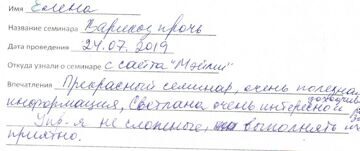 Имя Елена
Название семинара Варикоз прочь
Дата проведения 24.07.2019
Откуда узнали о семинаре с сайта "Мэйпл"
Впечатления Прекрасный семинар, очень полезная
информация, Светлана очень интересно и доходчиво
Упр-я не сложные, выполнять их
приятно.